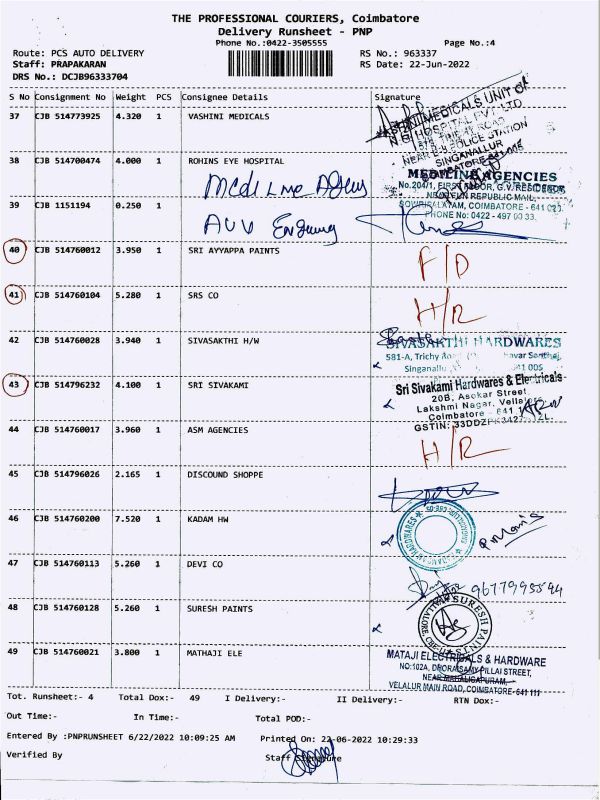 THE PROFESSIONAL COURIERS, Coimbatore
Delivery Runsheet - PNP
Phone No.:0422-3505555 Page No.:4
Route: PCS AUTO DELIVERY RS No.: 963337
Staff: PRAPAKARAN RS Date: 22-Jun-2022
DRS No.: DCJB96333704
S No Consignment No Weight PCS Consignee Details Signature
37 CJB 514773925 4.320 1 VASHINI MEDICALS
MEDICALS UNIT OF
HOSPITAL PVT. LTD
NEAR POLICE STATION
SINGANALLUR
38 CJB 514700474 4.000 1 ROHINS EYE HOSPITAL
MEDILINE AGENCIES
No.204/1, FIRST FLOOR, G.V. RESIDENCY
NEAR FUN REPUBLIC MAIL,
SOWRIPALAYAM, COIMBATORE - 641 028
PHONE No: 0422 - 497 00 33.
39 CJB 1151194 0.250 1
40 CJB 514760012 3.950 1 SRI AYYAPPA PAINTS F/D
41 CJB 514760104 5.280 1 SRS CO H/R
42 CJB 514760028 3.940 1 SIVASAKTHI H/W
SIVASAKTHI HARDWARES
581-A, Trichy
Singanallu 005
43 CJB 514796232 4.100 1 SRI SIVAKAMI
Sri Sivakami Hardwares & Electricals
20B, Asokar Street,
Lakshmi Nagar,
Coimbatore - 641
GSTIN:
44 CJB 514760017 3.960 1 ASM AGENCIES H/R
45 CJB 514796026 2.165 1 DISCOUND SHOPPE
46 CJB 514760200 7.520 1 KADAM HW
HARDWARES
47 CJB 514760113 5.260 1 DEVI CO
48 CJB 514760128 5.260 1 SURESH PAINTS
SURESH
49 CJB 514760021 3.800 1 MATHAJI ELE
MATAJI ELECTRICALS & HARDWARE
NO:102A, DHORAISAMY PILLAI STREET,
NEAR MAHALIGAPURAM,
VELALUR MAIN ROAD, COIMBATORE-641 111
Tot. Runsheet:- 4 Total Dox:- 49 I Delivery:- II Delivery:- RTN Dox:-
Out Time:- In Time:- Total POD:-
Entered By :PNPRUNSHEET 6/22/2022 10:09:25 AM Printed On: 22-06-2022 10:29:33
Verified By Staff Signature